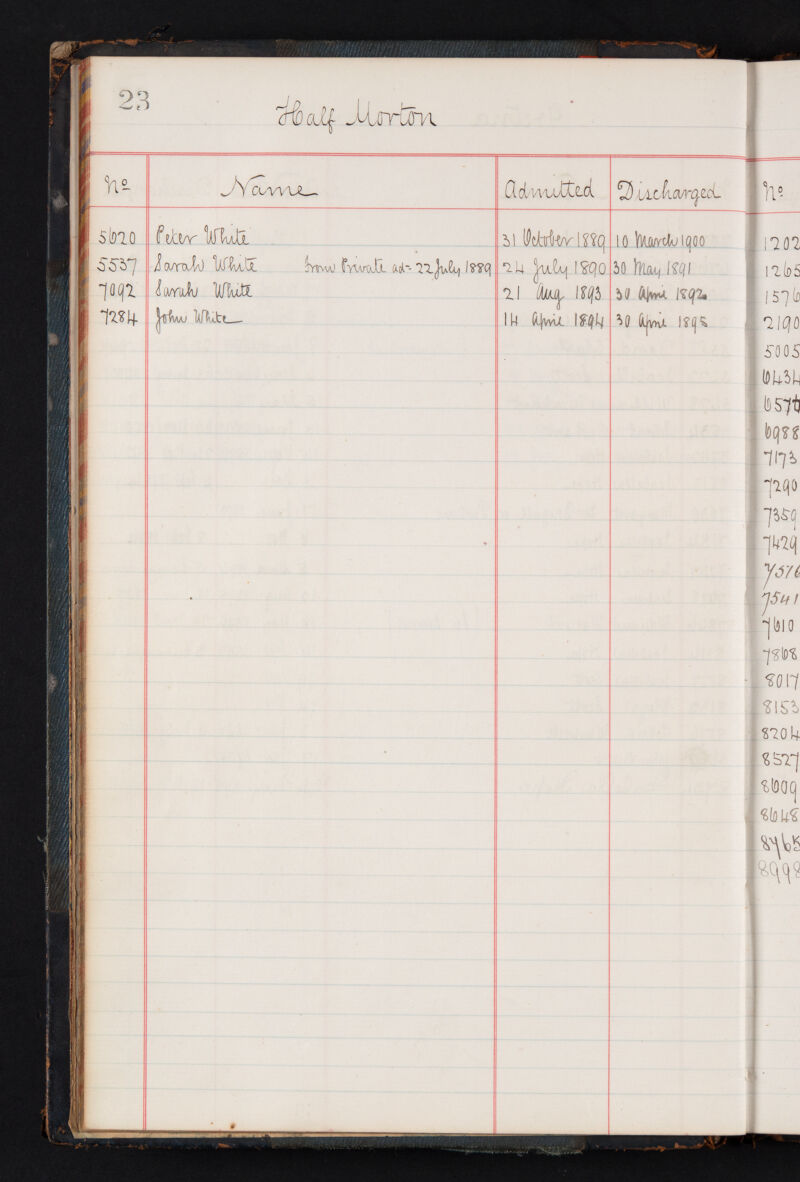 23
Half Morton
No Name Admitted Discharged
5620 Peter White 31 October 1889 10 March 1900
5537 Sarah White from Private ad- 22 July 1889 24 July 1890 30 May 1891
7092 Sarah White 21 Aug 1893 30 April 189
7284 John White 14 April 1894 30 April 1895
No
1202
1265
1576
2190
5005
6434
657
6988
7173
7290
7359
7429
7576
7541
7610
7868
8017
8153
8204
8527
8609
8648
8998